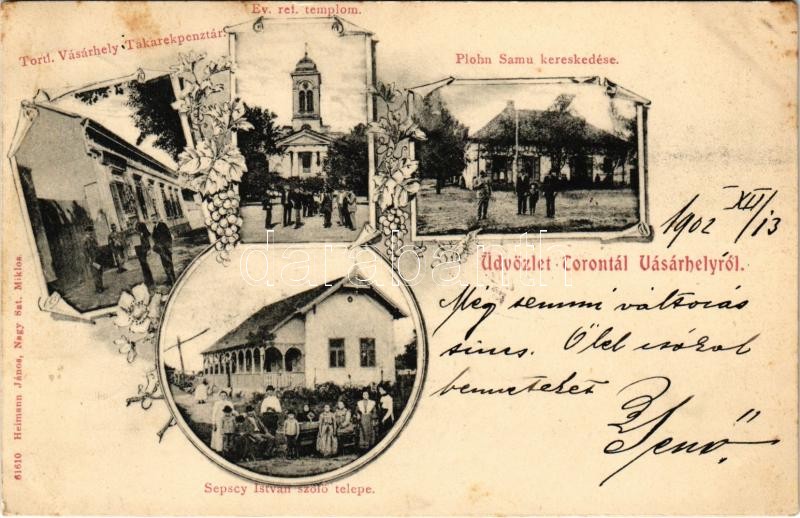 Ev. ref. templom.
Tortl. Vásárhely Takarekpenztár.
Plohn Samu kereskedése.
1902 XII/13
Üdvözlet Torontál Vásárhelyről.
Még semmi változás
sincs. Ölel csókol
benneteket
Jenő
Sepscy István szőlő telepe.
61610 Heimann János, Nagy Szt. Miklos.
darabanth.com